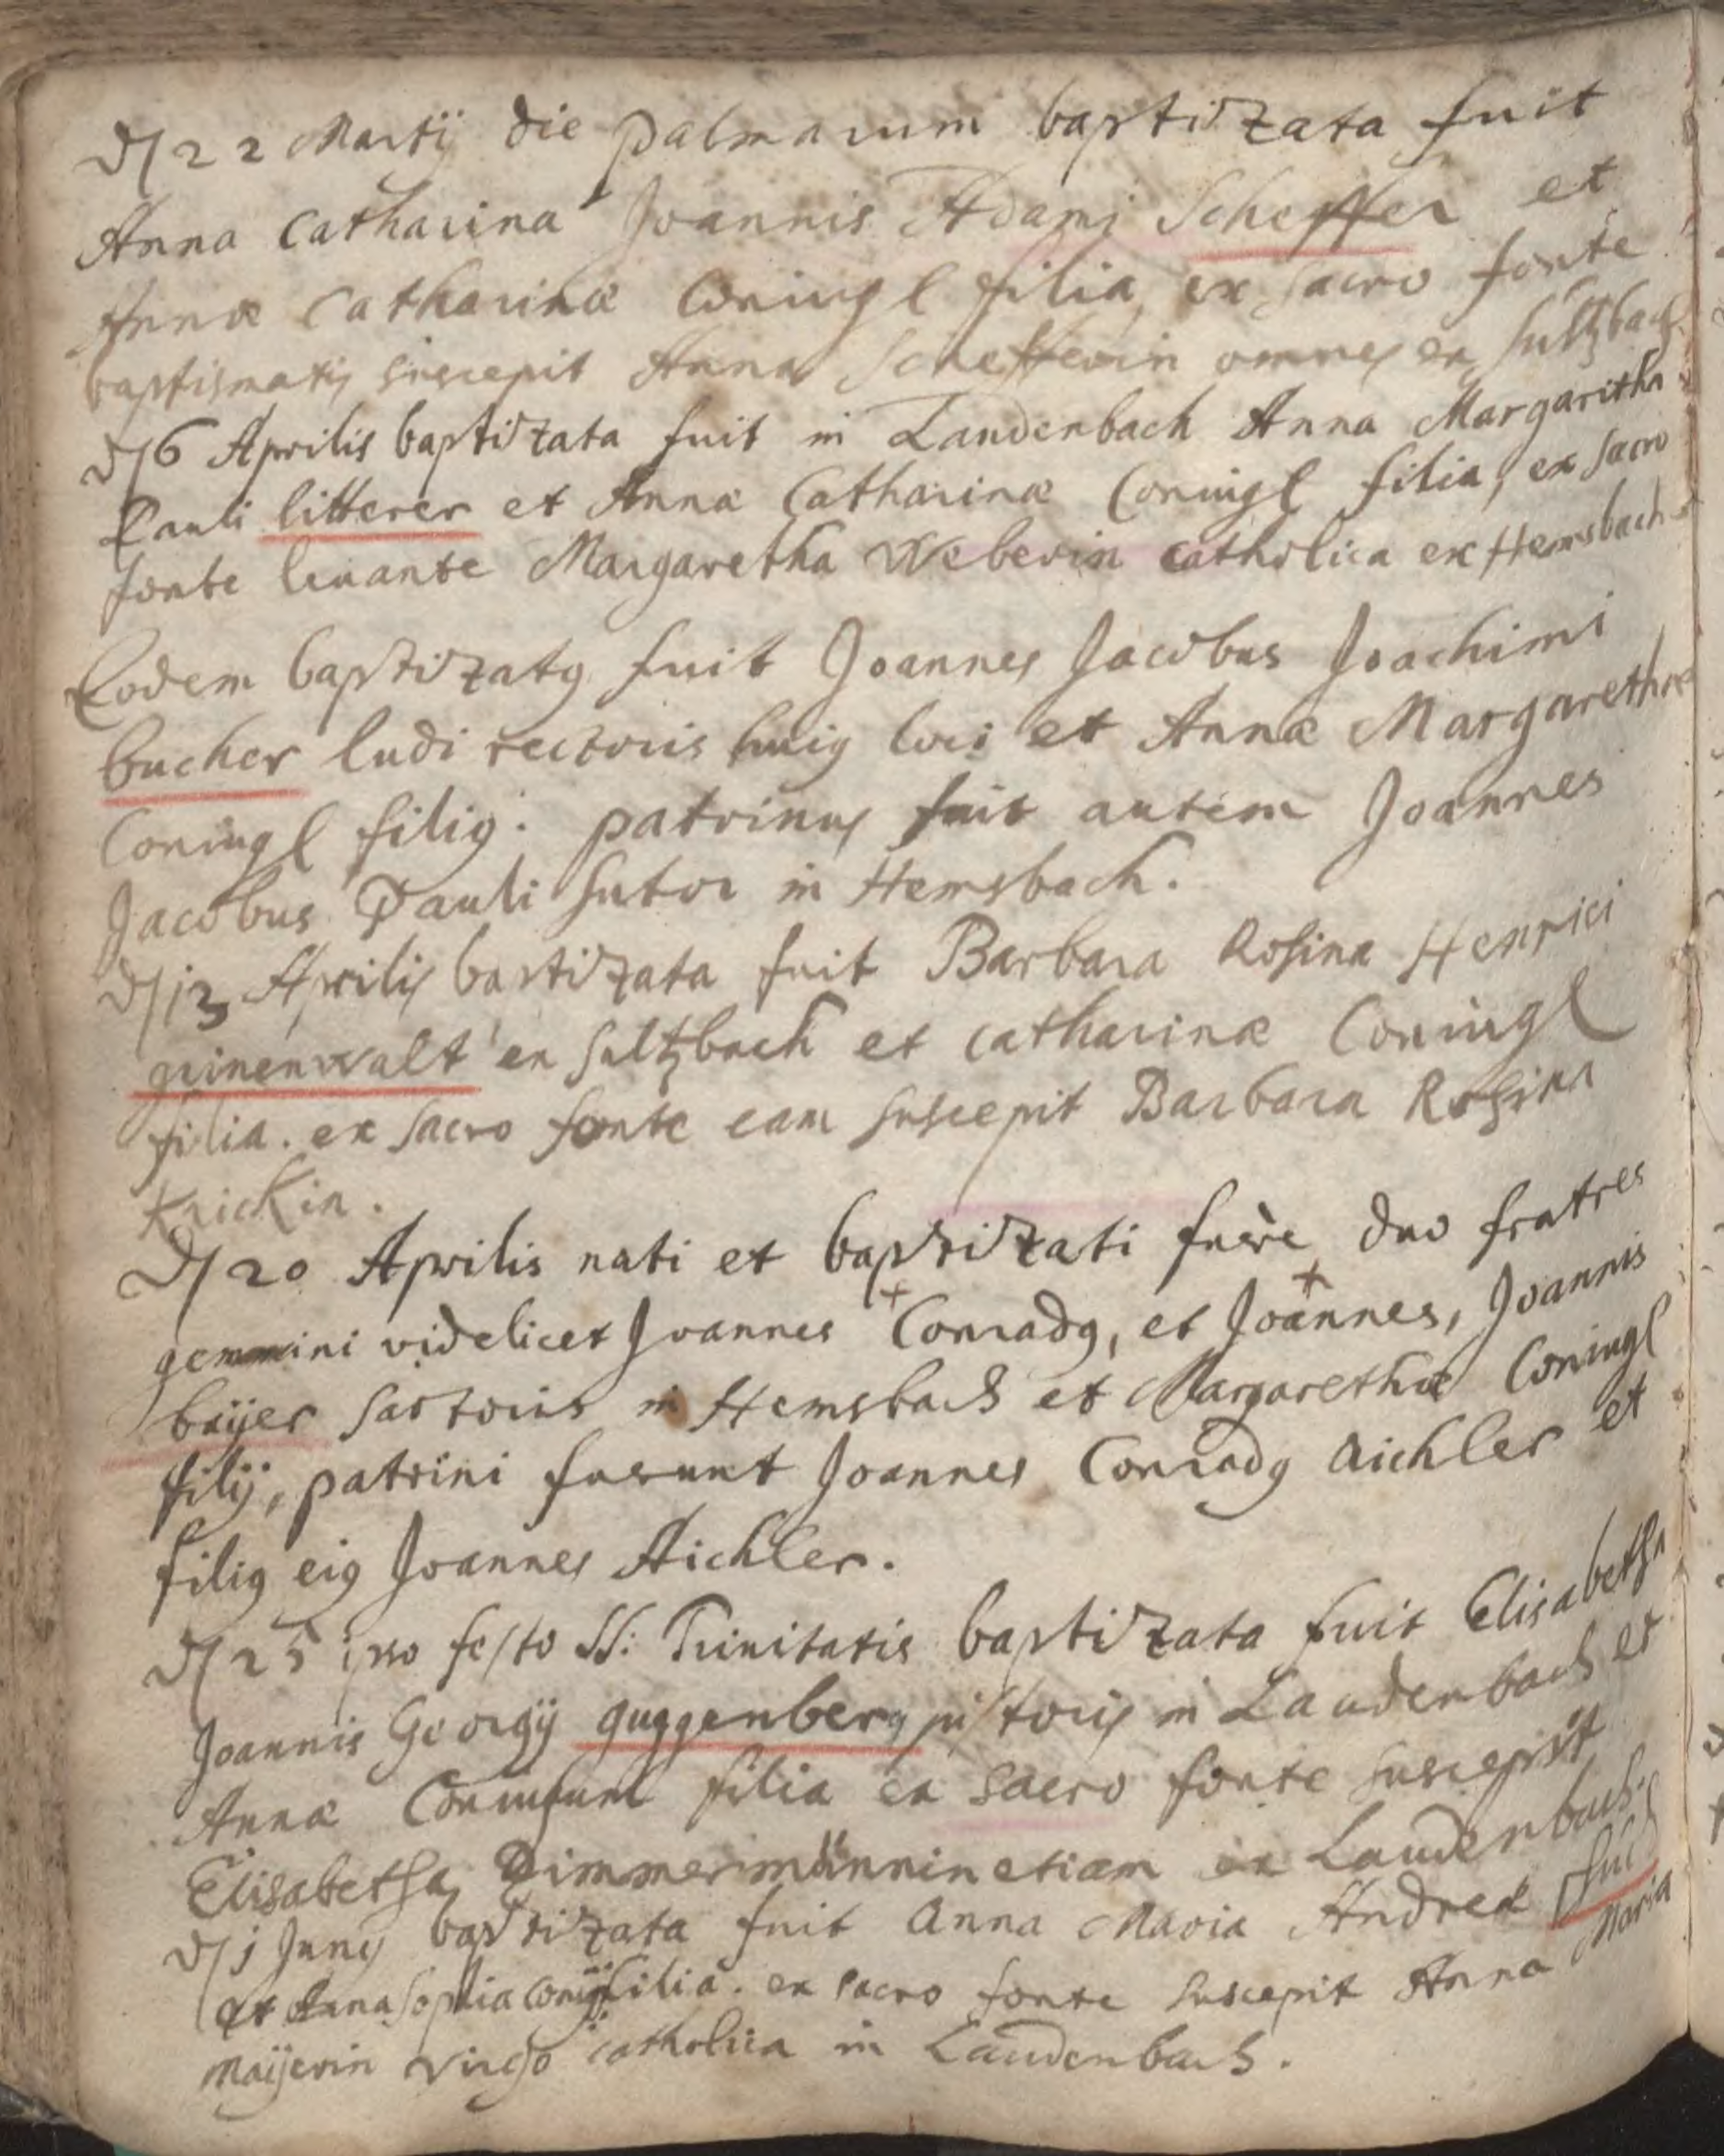 d 22 Martij die palmarum baptizata fuit
Anna Catharina Joannis Adami Scheffer et
Annæ Catharinæ Coniugl filia, ex sacro fonte
baptismatis suscepit Anna Schefferin omnes ex Sultzbach
d 6 Aprilis baptizata fuit in Laudenbach Anna Margaritha
Pauli litterer et Annæ Catharinæ Coniugl filia, ex sacro
fonte leuante Margaretha Weberin catholica ex Hemsbach
Eodem baptizatq fuit Joannes Jacobus Joachimi
bucher ludi rectoris huiq loci et Annæ Margarethæ
Coniugl filiq: patrinus fuit autem Joannes
Jacobus Pauli sutor in Hemsbach.
d 13 Aprilis baptizata fuit Barbara Rosina Henrici
grinenwalt ex Sultzbach et catharinæ Coniugl
filia. ex sacro fonte eam suscepit Barbara Rosina
Krickin.
d 20 Aprilis nati et baptizati fuère duo fratres
gemmini videlicet Joannes Conradq, et Joannes, Joannis
baÿer sartoris in Hemsbach et Margarethæ Coniugl
filij, patrini fuerunt Joannes Conradq Aichler et
filiq eiq Joannes Aichler.
d 25 ipso festo SS: Trinitatis baptizata fuit Elisabetha
Joannis Georgij guggenberg pistoris in Laudenbach et
Annæ Coniugum filia ex sacro fonte suscepit
Elisabetha Dimmermännin etiam ex Laudenbach.
d 1 Junij baptizata fuit Anna Maria Andreæ
et Anna Sophia conijg filia. ex sacro fonte suscepit Anna Maria
Maÿerin virgo catholica in Laudenbach.